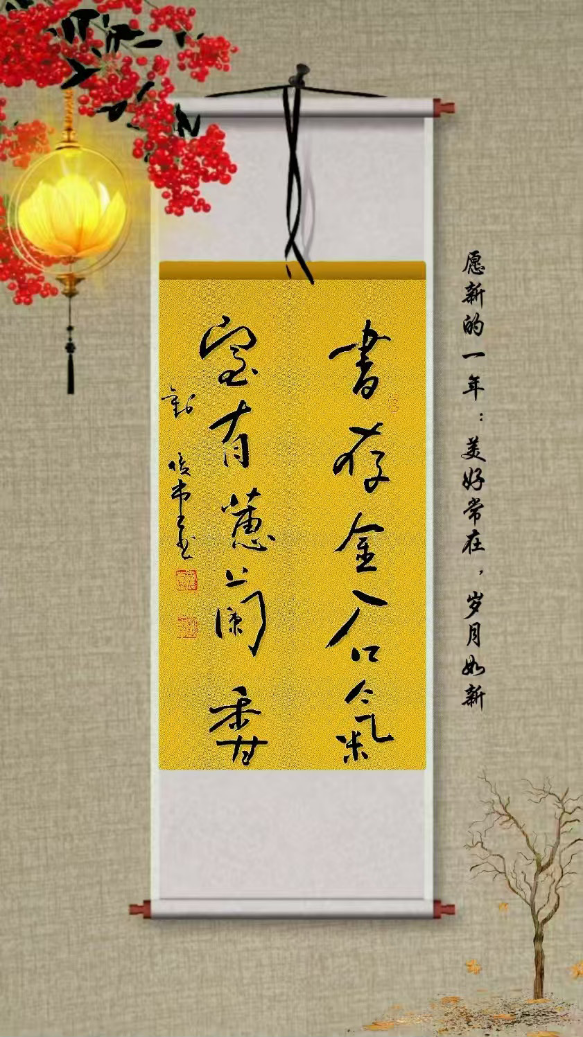 愿新的一年：美好常在，岁月如新
書存金石氣
室有蕙蘭香